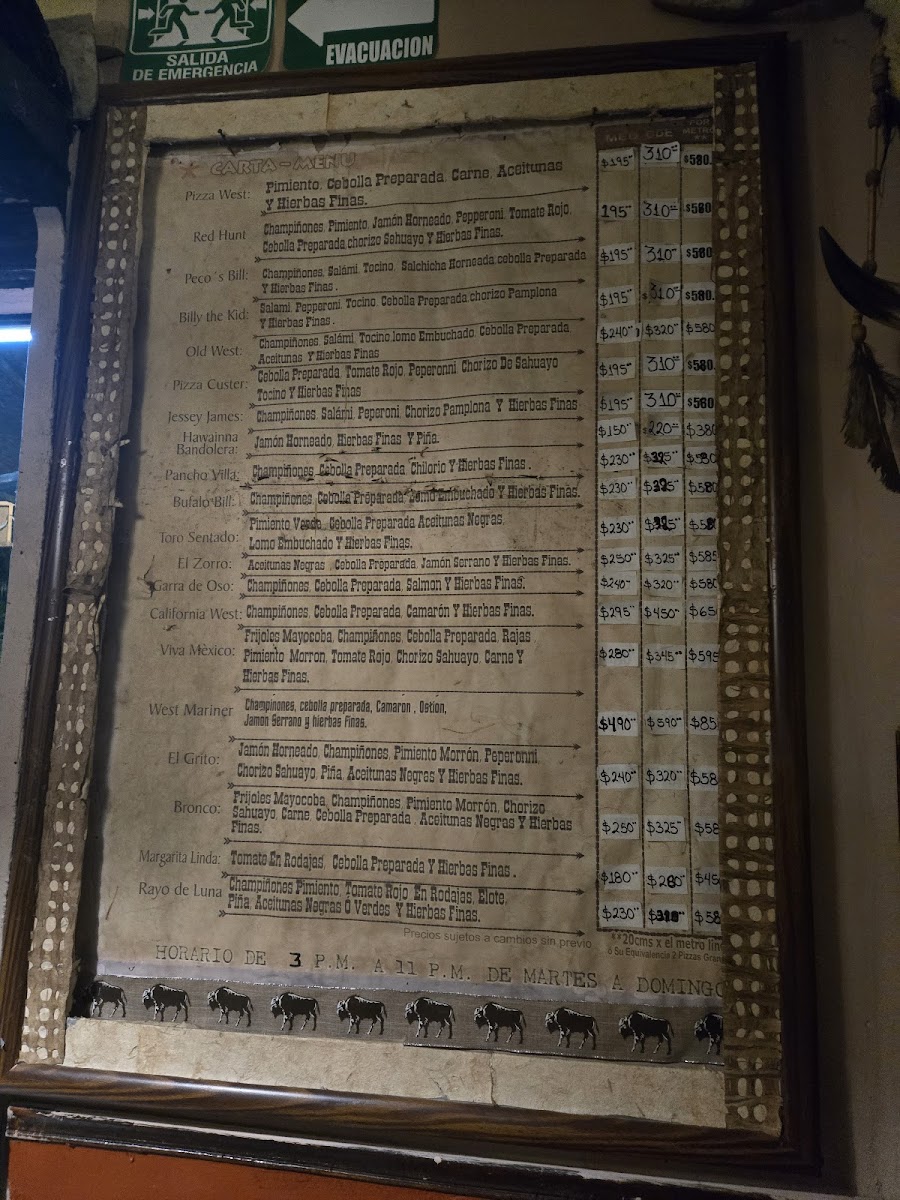 SALIDA
DE EMERGENCIA
EVACUACION
CARTA-MENU
MED GDE POR METRO
Pizza West: Pimiento, Cebolla Preparada, Carne, Aceitunas $195 310 $580
Y Hierbas Finas.
Red Hunt Champiñones, Pimiento, Jamón Horneado, Pepperoni, Tomate Rojo, 195 310 $580
Cebolla Preparada chorizo Sahuayo Y Hierbas Finas.
Peco´s Bill: Champiñones, Salámi, Tocino, Salchicha Horneada cebolla Preparada $195 310 $580
Y Hierbas Finas .
Billy the Kid: Salami, Pepperoni, Tocino, Cebolla Preparada chorizo Pamplona $195 $310 $580.
Y Hierbas Finas .
Old West: Champiñones, Salámi, Tocino, lomo Embuchado, Cebolla Preparada, $240 $320 $580
Aceitunas Y Hierbas Finas
Pizza Custer: Cebolla Preparada, Tomate Rojo, Peperonni, Chorizo De Sahuayo $195 310 $580
Tocino Y Hierbas Finas
Jessey James: Champiñones, Salámi, Peperoni, Chorizo Pamplona Y Hierbas Finas $195 310 $580
Hawainna
Bandolera: Jamón Horneado, Hierbas Finas Y Piña. $150 220 $380
Pancho Villa: Champiñones, Cebolla Preparada, Chilorio Y Hierbas Finas . $230 $325 $580
Bufalo Bill: Champiñones, Cebolla Preparada, Lomo Embuchado Y Hierbas Finas. $230 $325 $580
Toro Sentado: Pimiento Verde, Cebolla Preparada Aceitunas Negras, $230 $325 $58
Lomo Embuchado Y Hierbas Finas.
El Zorro: Aceitunas Negras , Cebolla Preparada, Jamón Serrano Y Hierbas Finas. $250 $325 $585
Garra de Oso: Champiñones, Cebolla Preparada, Salmon Y Hierbas Finas. $240 $320 $580
California West: Champiñones, Cebolla Preparada, Camarón Y Hierbas Finas. $295 $450 $65
Viva Mèxico: Frijoles Mayocoba, Champiñones, Cebolla Preparada, Rajas , $280 $345 $595
Pimiento Morron, Tomate Rojo, Chorizo Sahuayo, Carne Y
Hierbas Finas.
West Mariner Champiñones, cebolla preparada, Camaron , Ostion, $490 $590 $85
Jamon Serrano y hierbas finas.
El Grito: Jamón Horneado, Champiñones, Pimiento Morrón, Peperonni, $240 $320 $58
Chorizo Sahuayo, Piña, Aceitunas Negras Y Hierbas Finas.
Bronco: Frijoles Mayocoba, Champiñones, Pimiento Morrón, Chorizo $250 $325 $58
Sahuayo, Carne, Cebolla Preparada , Aceitunas Negras Y Hierbas
Finas.
Margarita Linda: Tomate En Rodajas, Cebolla Preparada Y Hierbas Finas . $180 $280 $45
Rayo de Luna Champiñones Pimiento, Tomate Rojo En Rodajas, Elote, $230 $58
Piña, Aceitunas Negras O Verdes Y Hierbas Finas.
Precios sujetos a cambios sin previo
**20cms x el metro lin
ó Su Equivalencia 2 Pizzas Gran
HORARIO DE 3 P.M. A 11 P.M. DE MARTES A DOMINGO